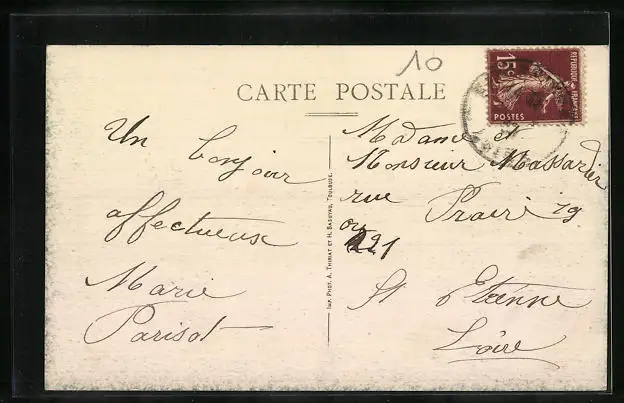 10
CARTE POSTALE
15c
REPUBLIQUE FRANÇAISE
POSTES
Un bonjour
affectueuse
Marie
Parisot
IMP. PHOT. A. THIRIAT ET H. BASUYAU, TOULOUSE.
Madame et
Monsieur Massardier
rue Prairie 19
ou 21
St Etienne
Loire